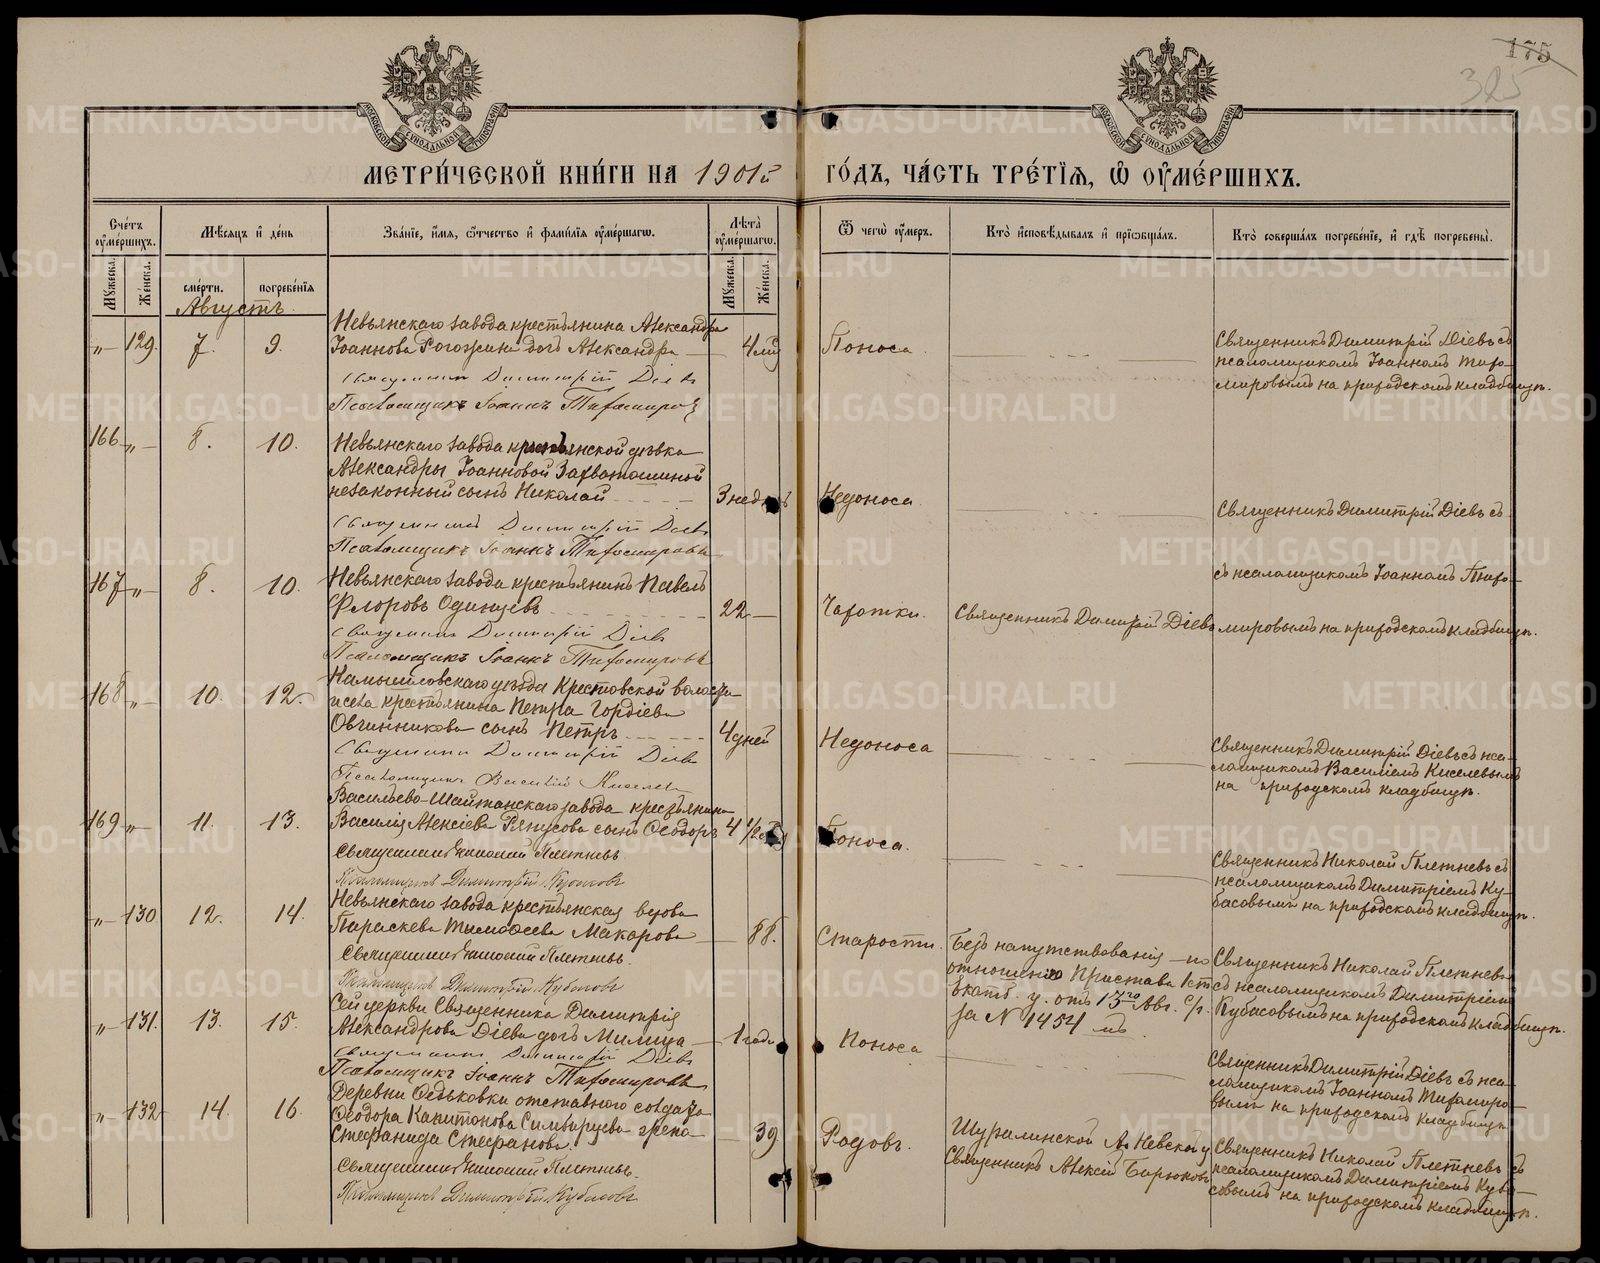 175
325
МЕТРИ́ЧЕСКОЙ КНИ́ГИ НА 1901й ГО́ДЪ, ЧА́СТЬ ТРЕ́ТІѦ, Ѽ ОУ҆МЕ́РШИХЪ.
Сче́тъ оу҆ме́ршихъ.
Мꙋ́жеска.
Же́нска.
Мѣ́сяцъ и҆ де́нь
сме́рти.
погребе́нїѧ
Зва́нїе, и҆́мѧ, ѻ҆́тчество и҆ фами́лїѧ оу҆ме́ршагѡ.
Лѣ́та оу҆ме́ршагѡ.
Мꙋ́жеска.
Же́нска.
Ѿ чегѡ̀ оу҆́меръ.
Кто̀ и҆сповѣ́дывалъ и҆ прїѡбща́лъ.
Кто̀ соверша́лъ погребе́нїе, и҆ гдѣ̀ погребены̀.
Августъ.
„ 129. 7. 9.
Невьянскаго завода крестьянина Александра
Іоаннова Рогожина дочь Александра
4 Поноса.
Священникъ Димитрій Діевъ
Псаломщикъ Іоаннъ Тихомировъ
Священникъ Димитрій Діевъ съ
псаломщикомъ Іоанномъ Тихо-
мировымъ на приходскомъ кладбищѣ.
166 „ 8. 10.
Невьянскаго завода крестьянской дѣвки
Александры Іоанновой Захватошиной
незаконный сынъ Николай
3 недѣль Недоноса
Священникъ Димитрій Діевъ
Псаломщикъ Іоаннъ Тихомировъ
Священникъ Димитрій Діевъ съ
167 „ 8. 10.
Невьянскаго завода крестьянинъ Павелъ
Флоровъ Одинцевъ
22 Чахотки. Священникъ Димитрій Діевъ
Священникъ Димитрій Діевъ
Псаломщикъ Іоаннъ Тихомировъ
съ псаломщикомъ Іоанномъ Тихо-
мировымъ на приходскомъ кладбищѣ.
168 „ 10. 12.
Камышловскаго уѣзда Крестовской волости
и села крестьянина Петра Гордіева
Овчинникова сынъ Петръ
4 дней Недоноса
Священникъ Димитрій Діевъ
Псаломщикъ Василій Киселевъ
Священникъ Димитрій Діевъ съ пса-
ломщикомъ Василіемъ Киселевымъ
на приходскомъ кладбищѣ.
169 „ 11. 13.
Васильево-Шайтанскаго завода крестьянина
Василія Алексіева Ряпусова сынъ Ѳеодоръ
4 1/2 Поноса.
Священникъ Николай Плетневъ
Псаломщикъ Димитрій Кубасовъ
Священникъ Николай Плетневъ съ
псаломщикомъ Димитріемъ Ку-
басовымъ на приходскомъ кладбищѣ.
„ 130 12. 14.
Невьянскаго завода крестьянская вдова
Параскева Тимоѳеева Макарова
88. Старости.
Священникъ Николай Плетневъ.
Псаломщикъ Димитрій Кубасовъ
Безъ напутствованія — по
отношенію Пристава 1 ст
Екатб. у. от 13го Авг. с/г.
за № 1454 мъ
Священникъ Николай Плетневъ
съ псаломщикомъ Димитріемъ
Кубасовымъ на приходскомъ кладбищѣ.
„ 131. 13. 15.
Сей церкви Священника Димитрія
Александрова Діева дочь Милица
1 года Поноса
Священникъ Димитрій Діевъ
Псаломщикъ Іоаннъ Тихомировъ
Священникъ Димитрій Діевъ съ пса-
ломщикомъ Іоанномъ Тихомиро-
вымъ на приходскомъ кладбищѣ
„ 132 14. 16.
Деревни Ѳедьковки отставного солдата
Ѳеодора Капитонова жена
Стефанида Стефанова.
39 Родовъ.
Священникъ Николай Плетневъ.
Псаломщикъ Димитрій Кубасовъ
Шуралинской Ал. Невской ц.
Священникъ Алексій Бирюковъ
Священникъ Николай Плетневъ съ
псаломщикомъ Димитріемъ Куба-
совымъ на приходскомъ кладбищѣ.
METRIKI.GASO-URAL.RU